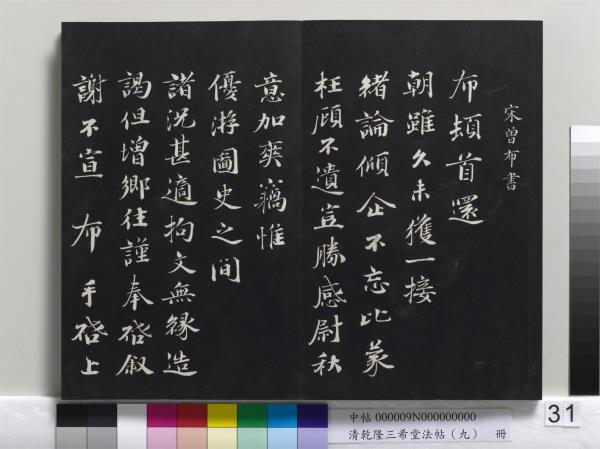 宋曾布書
布頓首還
朝雖久未獲一接
緒論傾企不忘比蒙
枉顧不遺豈勝感尉秋
意加爽竊惟
優游圖史之间
諸況甚適拘文無緣造
謁但增鄉往謹奉啓叙
謝不宣 布 手啓上
中帖 000009N000000000
清乾隆三希堂法帖（九） 冊
31